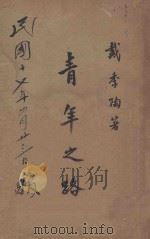 戴季陶著
青年之路
民國十七年
月廿三日